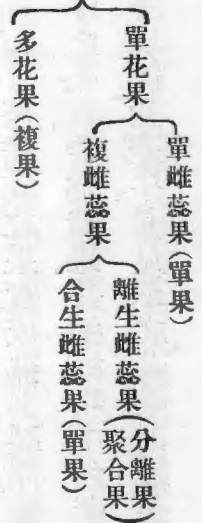 單花果
單雌蕊果(單果)
複雌蕊果
離生雌蕊果(分離果
聚合果)
合生雌蕊果(單果)
多花果(複果)